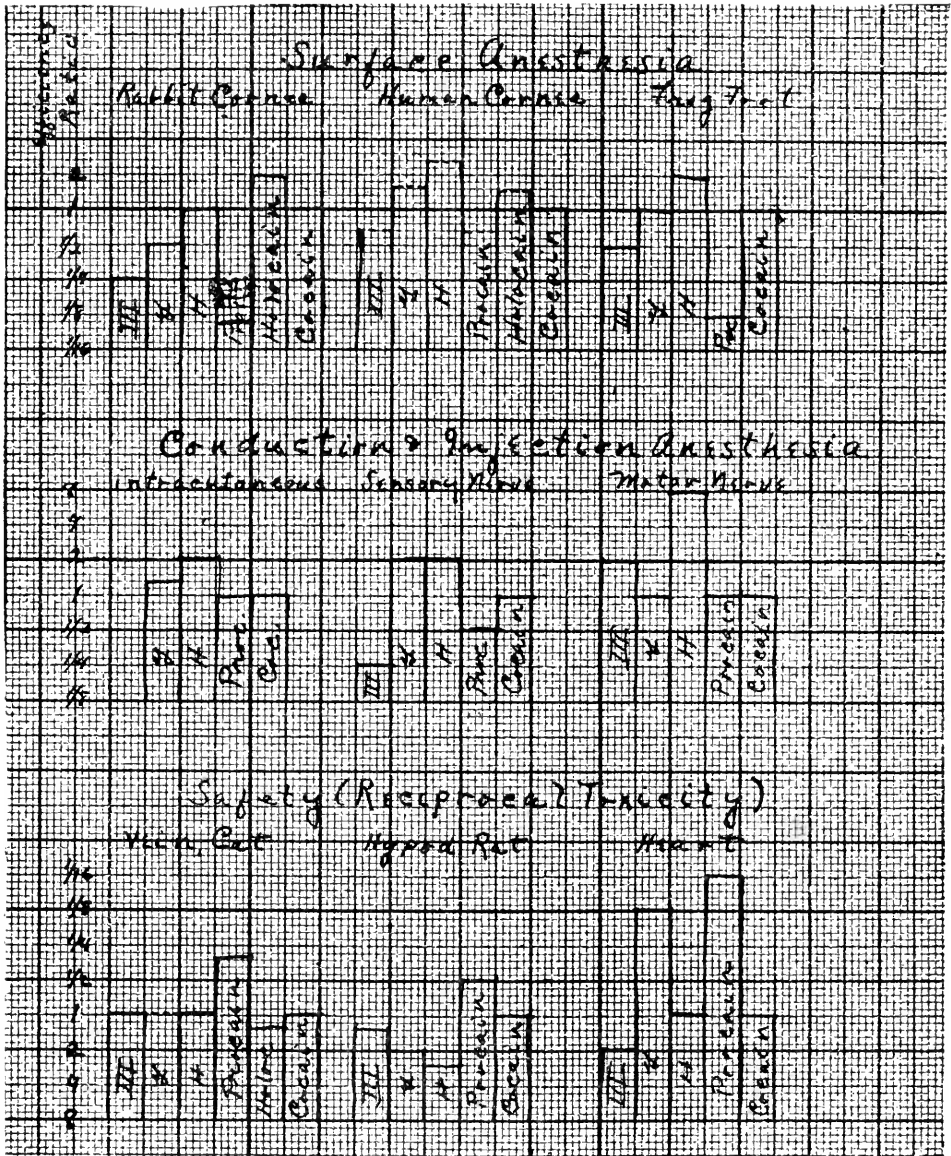 Efficiency Ratio
Surface Anesthesia
Rabbit Cornea Human Cornea Frog Foot
2
1
1/2
1/4
1/8
1/16
III H Holocain Cocain
III H Procain Holocain Cocain
III H Proc Cocain
Conduction & Injection Anesthesia
intracutaneous Sensory Nerve Motor Nerve
4
2
1
1/2
1/4
1/8
H Proc Coc.
III H Proc Cocain
III H Procain Cocain
Safety (Reciprocal Toxicity)
Vein, Cat Hypod Rat Heart
1/16
1/8
1/4
1/2
1
2
4
8
III H Procain Holoc Cocain
III H Procain Cocain
III H Procain Cocain